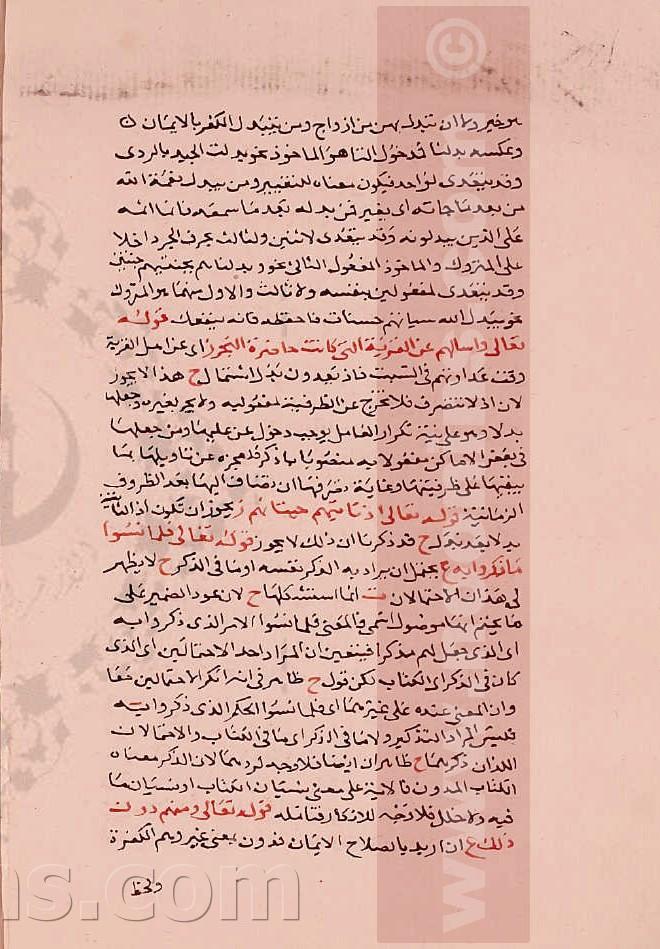 هو خير ولا ان تبدل بهن من ازواج ومن يتبدل الكفر بالايمان
وعكسه بدلنا قد خول التاهو الماخوذ نحو بدلت الجيد بالردى
وقد يتعدى لواحد فيكون معناه للتغيير ومن يبدل نعمة الله
من بعد ما جاته اى يغير فمن بدله بعد ما سمعه فانما اثمه
على الذين يبدلونه وقد يتعدى لاثنين ولثالث بحرف الجر داخلا
على المتروك والماخوذ المفعول الثانى نحو وبدلناهم بجنتيهم جنتين
وقد يتعدى لمفعولين بنفسه ولا ثالث والاول منهما هو المتروك
نحو يبدل الله سياتهم حسنات فاحفظه فانه ينفعك قوله
تعالى واسالهم عن القرية التى كانت حاضرة البحر ز اى عن اهل القرية
وقت عداوتهم فى السبت فاذ يعدون بدل اشتمال ح هذا لا يجوز
لان اذ لا تتصرف فلا تخرج عن الظرفية مفعوليه ولا يجر بغيره وجعلها
بدلا وهو على نية تكرار العامل يوجب دخول عن عليها ومن جعلها
فى بعض الاماكن مفعولا به منصوبا باذكر فلعجزه عن تاويلها بما
يبقيها على ظرفيتها وغاية تصرفها ان تضاف اليها بعد الظروف
الزمانية قوله تعالى اذ تاتيهم حيتانهم ز يجوز ان تكون اذ الثانية
بدلا بعد بدل ح قد ذكرنا ان ذلك لا يجوز قوله تعالى فلما نسوا
ما ذكروا به ع يحتمل ان يراد به الذكر نفسه او ما فى الذكر ح لا يظهر
لى هذان الاحتمالان ت انما استشكلها ح لان عود الضمير على
ما يحتم انها موصول اسمى فالمعنى فلما نسوا الامر الذى ذكروا به
اى الذى جعل لهم مذكرا فيتعين ان المراد احد الاحتمالين اى الذى
كان فى الذكر اى الكتاب لكن قول ح ظاهر فى انه انكر الاحتمالين معا
وان المعنى عنده على غيرهما اى فلما نسوا الحكم الذى ذكروا به
فليس المراد التذكير ولا ما فى الذكر اى ما فى الكتاب والاحتمالان
اللذان ذكرهما ح ظاهران ايضا فلا وجه لردهما لان الذكر معناه
الكتاب المدون فالاية على معنى نسيان الكتاب او نسيان ما
فيه ولا خلل فلا وجه للانكار فتامله قوله تعالى ومنهم دون
ذلك ع ان اريد بالصلاح الايمان فدون بمعنى غير وهم الكفرة
ns.com
©
www.